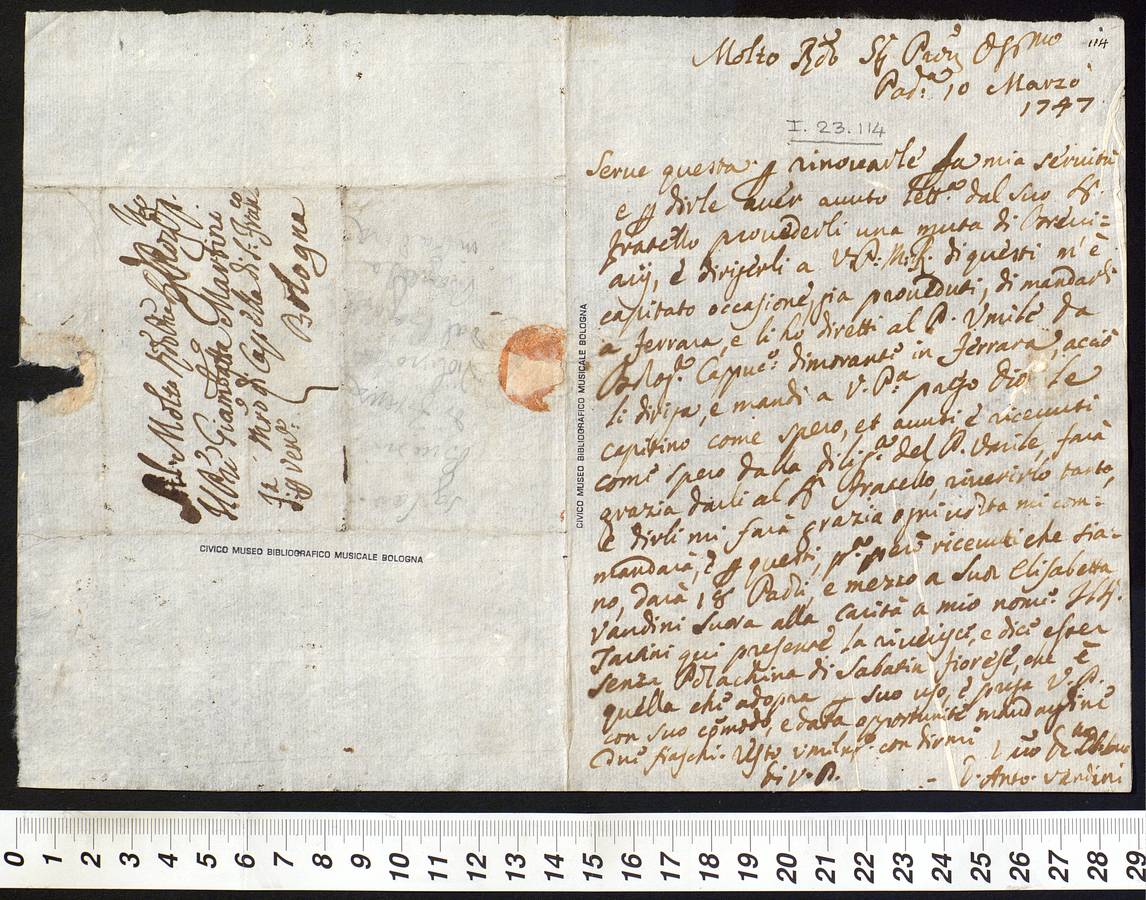 Molto Rdo Sig Padn Ossmo
Pad:a 10 Marzo
1747
114
I. 23. 114
Serve questa p rinovarle la mia servitù
e p dirle aver avuto lettª dal suo Sr.
fratello provederli una muta di Brevi=
arij, e dirigerli a V.P.M.R. di questi m'è
capitato occasione, già proveduti, di mandarli
a Ferrara, e li ho diretti al P. Umile da
Bologª. Capucº. dimorante in Ferrara, acciò
li dirija, e mandi a V. Pª pago Dio le
capitino come spero, et avuti e ricevuti
come spero dalla diligª. del P. Umile, farà
grazia darli al Sr. fratello, riverirlo tanto,
e dirli mi farà grazia ogni volta mi com=
mandarà, e p questi, pª però ricevuti che sia=
no, darà 18 Paoli, e mezzo a Suor Elisabetta
Vandini Suora alla Carità a mio nome. Il Sr.
Tartini qui presente la riverisce, e dice esser
senza Polachina di Sabatin fiorese, che è
quella che adopra p suo uso, e prega V. P.
con suo cõmodo, e data opportunità mandargline
due fiaschi. Resto umilmte. con dirmi
di V. P.
D. Anto. Vandini
Al Molto Rdo
Il Pre Giambatta Martini
Mrõ di Capella di S: Franco
Bologna
CIVICO MUSEO BIBLIOGRAFICO MUSICALE BOLOGNA
CIVICO MUSEO BIBLIOGRAFICO MUSICALE BOLOGNA
0 1 2 3 4 5 6 7 8 9 10 11 12 13 14 15 16 17 18 19 20 21 22 23 24 25 26 27 28 29